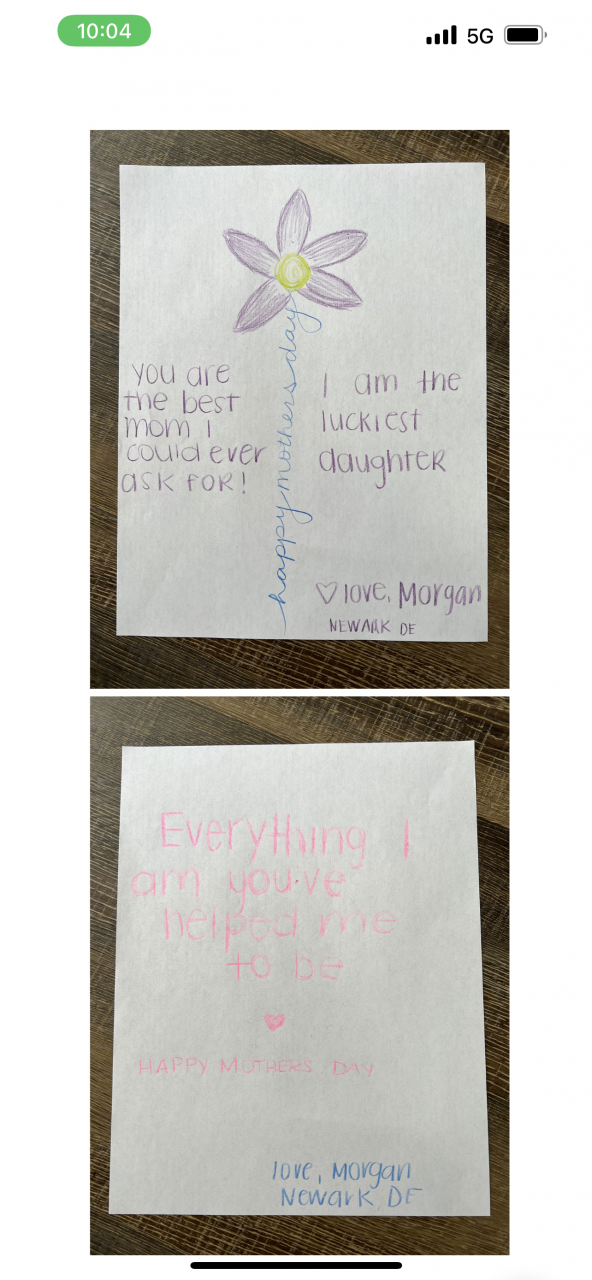 10:04
5G
you are
the best
mom I
could ever
ask for!
happy mothers day
I am the
luckiest
daughter
love, Morgan
NEWARK DE
Everything I
am you've
helped me
to be
HAPPY MOTHERS DAY
love, Morgan
Newark, DE